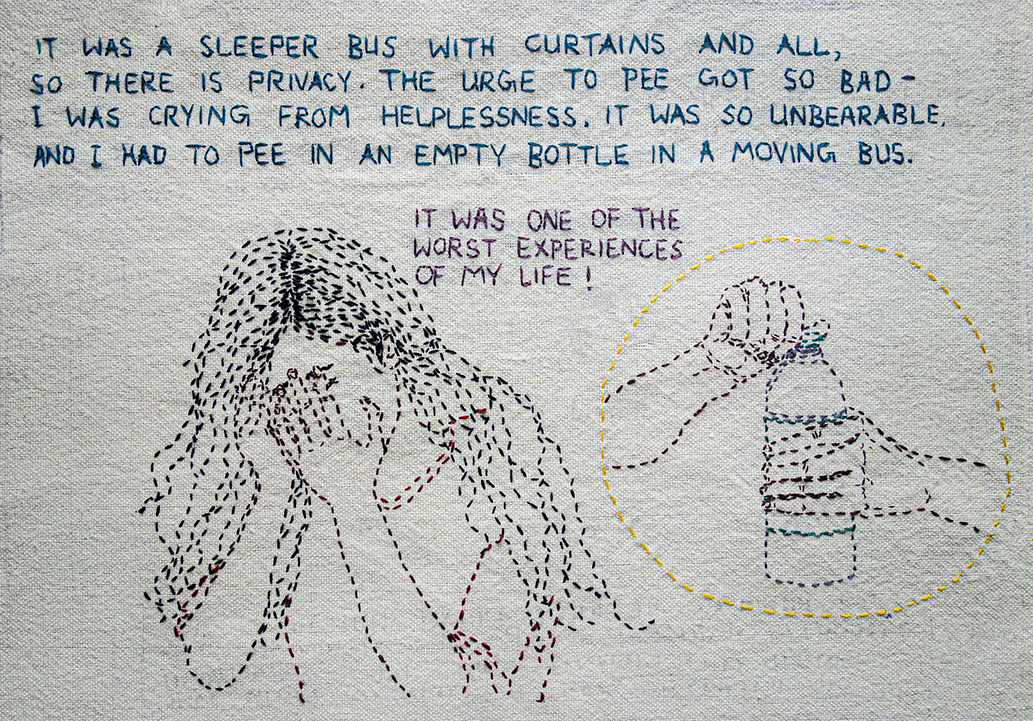 IT WAS A SLEEPER BUS WITH CURTAINS AND ALL,
SO THERE IS PRIVACY. THE URGE TO PEE GOT SO BAD -
I WAS CRYING FROM HELPLESSNESS. IT WAS SO UNBEARABLE,
AND I HAD TO PEE IN AN EMPTY BOTTLE IN A MOVING BUS.
IT WAS ONE OF THE
WORST EXPERIENCES
OF MY LIFE!